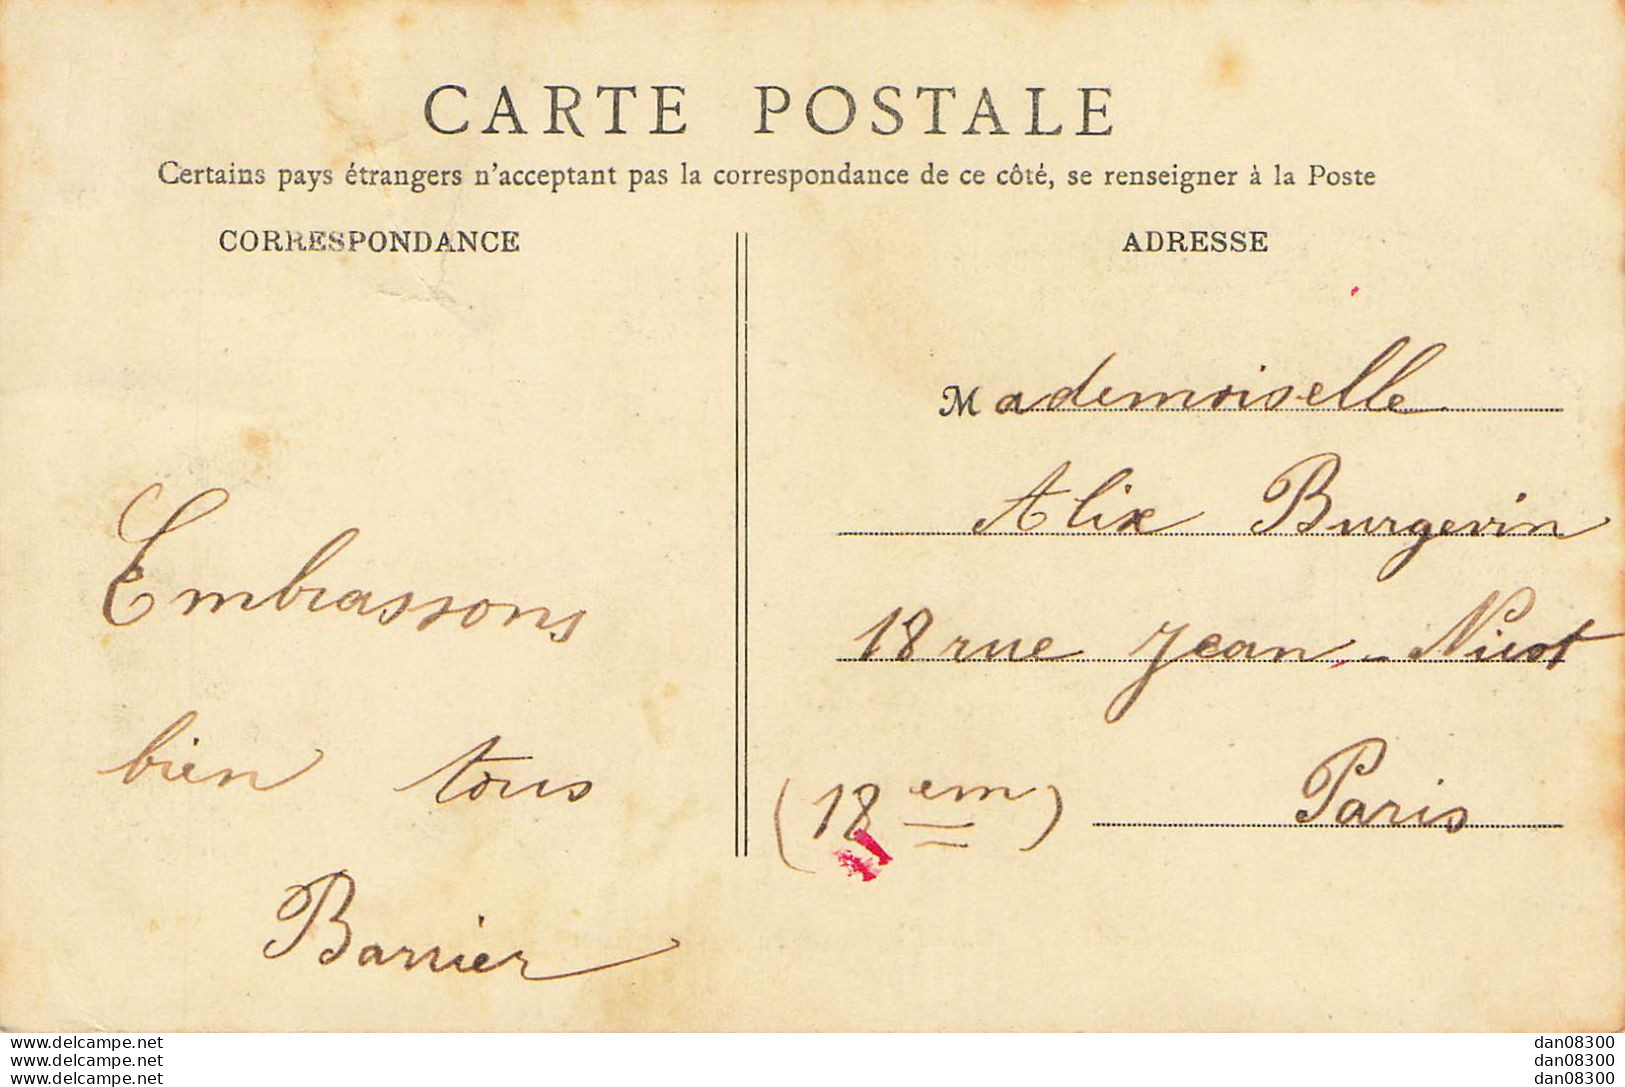 CARTE POSTALE
Certains pays étrangers n'acceptant pas la correspondance de ce côté, se renseigner à la Poste
CORRESPONDANCE
Embrassons
bien tous
Barrier
ADRESSE
Mademoiselle
Alix Burgevin
18 rue Jean-Nicot
(18em) Paris
www.delcampe.net
www.delcampe.net
www.delcampe.net
dan08300
dan08300
dan08300